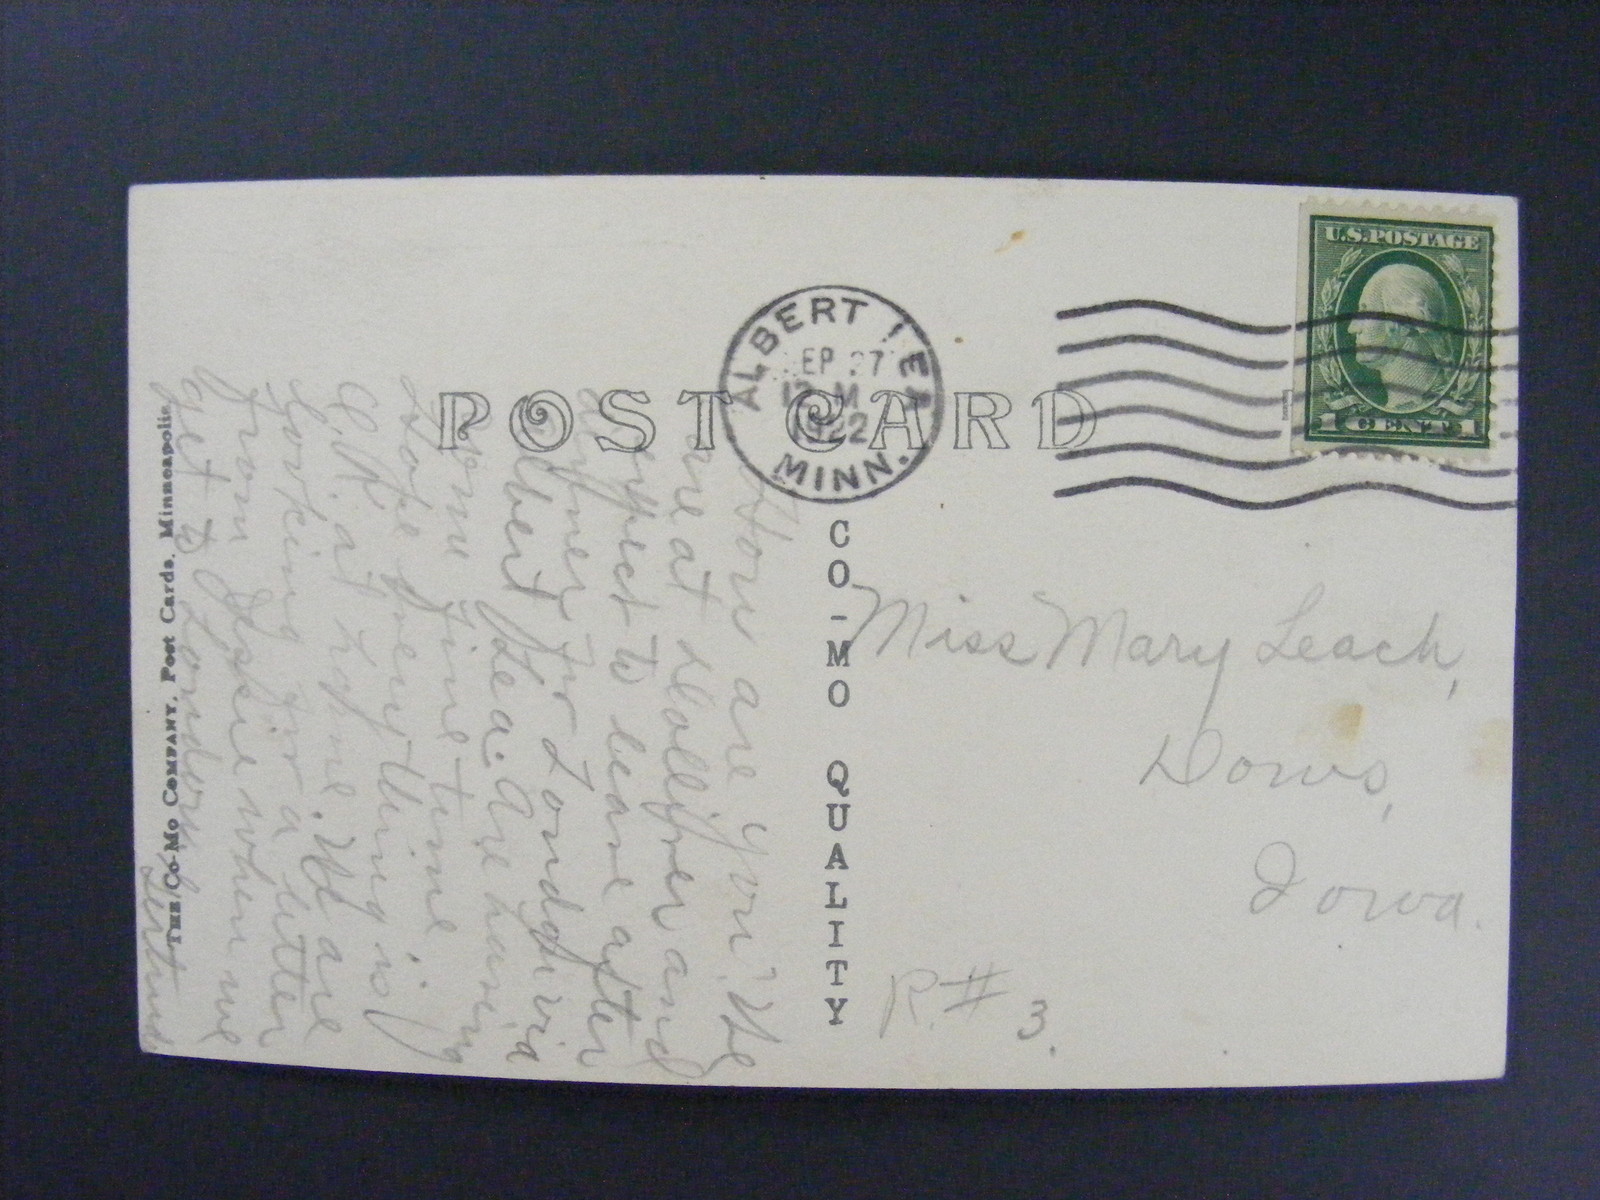 POST CARD
ALBERT LEA
SEP 27
12 M
1922
MINN.
U.S. POSTAGE
1 CENT 1
CO-MO QUALITY
THE CO-MO COMPANY, Post Cards, Minneapolis
Miss Mary Leach,
Dows,
Iowa.
R. # 3.
How are you? We
are at Dolliver and
expect to leave after
dinner for London via
Albert Lea. Are having
some fine time.
Hope everything is
O.K. at home. We are
looking for a letter
from Jessie when we
get to London.